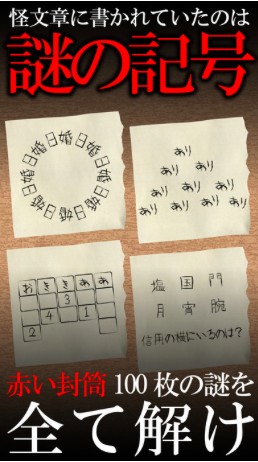 怪文章に書かれていたのは
謎の記号
婚日婚日婚日婚日婚日婚日婚日婚日
あり
あり あり
あり あり あり
あり あり あり あり
お き き あ あ
3
4 1
2
塩 国 門
月 宵 腕
信用の横にいるのは?
赤い封筒 100枚の謎を
全て解け